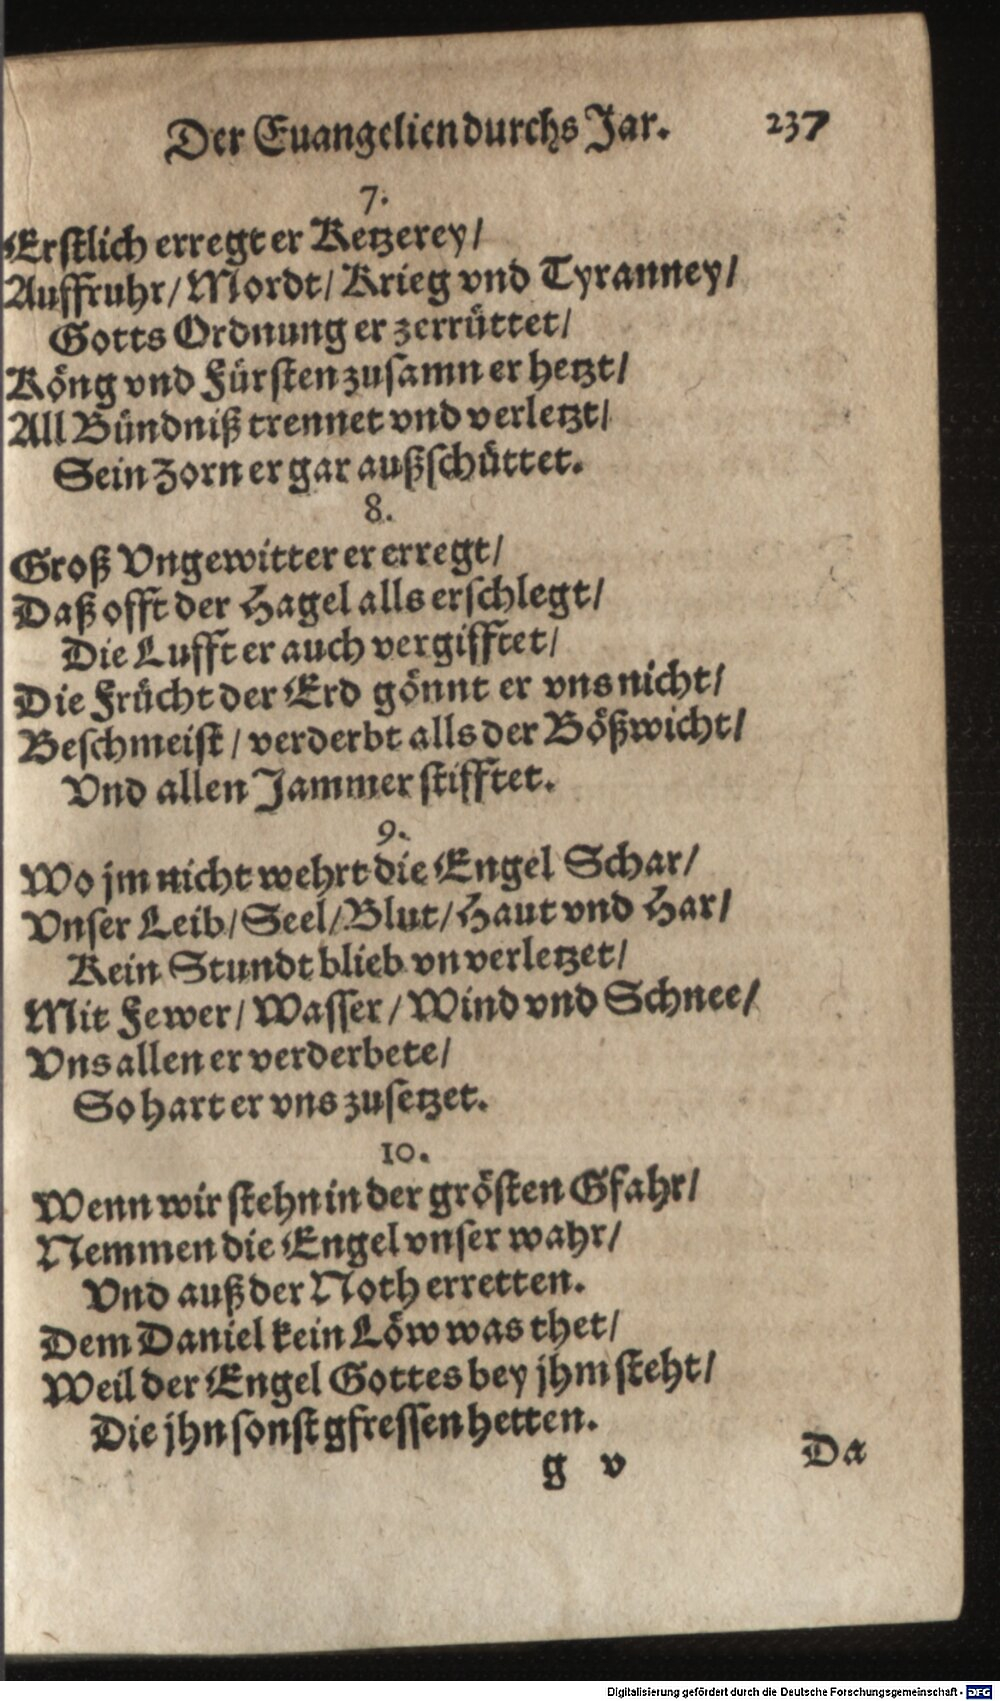 Der Euangelien durchs Jar. 237
7.
Erstlich erregt er Ketzerey/
Auffruhr/ Mordt/ Krieg vnd Tyranney/
Gotts Ordnung er zerrüttet/
Köng vnd Fürsten zusamn er hetzt/
All Bündniß trennet vnd verletzt/
Sein Zorn er gar außschüttet.
8.
Groß Vngewitter er erregt/
Daß offt der Hagel alls erschlegt/
Die Lufft er auch vergifftet/
Die Frücht der Erd gönnt er vns nicht/
Beschmeist/ verderbt alls der Bößwicht/
Vnd allen Jammer stifftet.
9.
Wo jm nicht wehrt die Engel Schar/
Vnser Leib/ Seel/ Blut/ Haut vnd Har/
Kein Stundt blieb vnverletzet/
Mit Fewer/ Wasser/ Wind vnd Schnee/
Vns allen er verderbete/
So hart er vns zusetzet.
10.
Wenn wir stehn in der grösten Gfahr/
Nemmen die Engel vnser wahr/
Vnd auß der Noth erretten.
Dem Daniel kein Löw was thet/
Weil der Engel Gottes bey jhm steht/
Die jhn sonst gfressen hetten.
g v Da
Digitalisierung gefördert durch die Deutsche Forschungsgemeinschaft - DFG